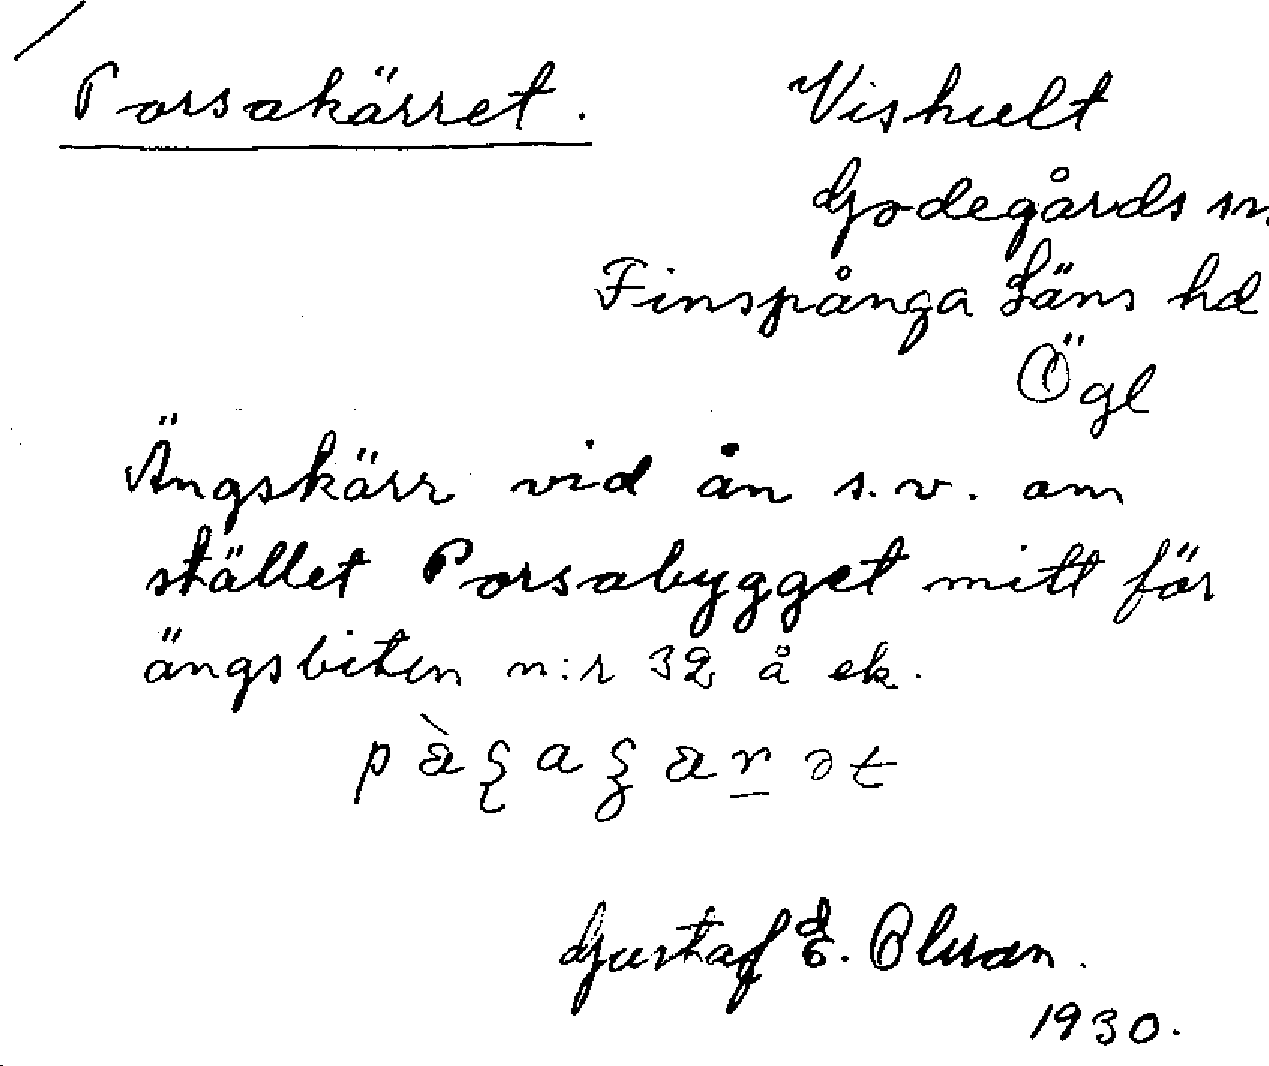 Porsakärret. Viskult
Godegårds sn.
Finspånga Läns hd
Ögl
Ängskärr vid ån s.v. om
stället Porsabygget mitt för
ängsbiten n:r 32 å ek.
Gustaf E. Olsson.
1930.